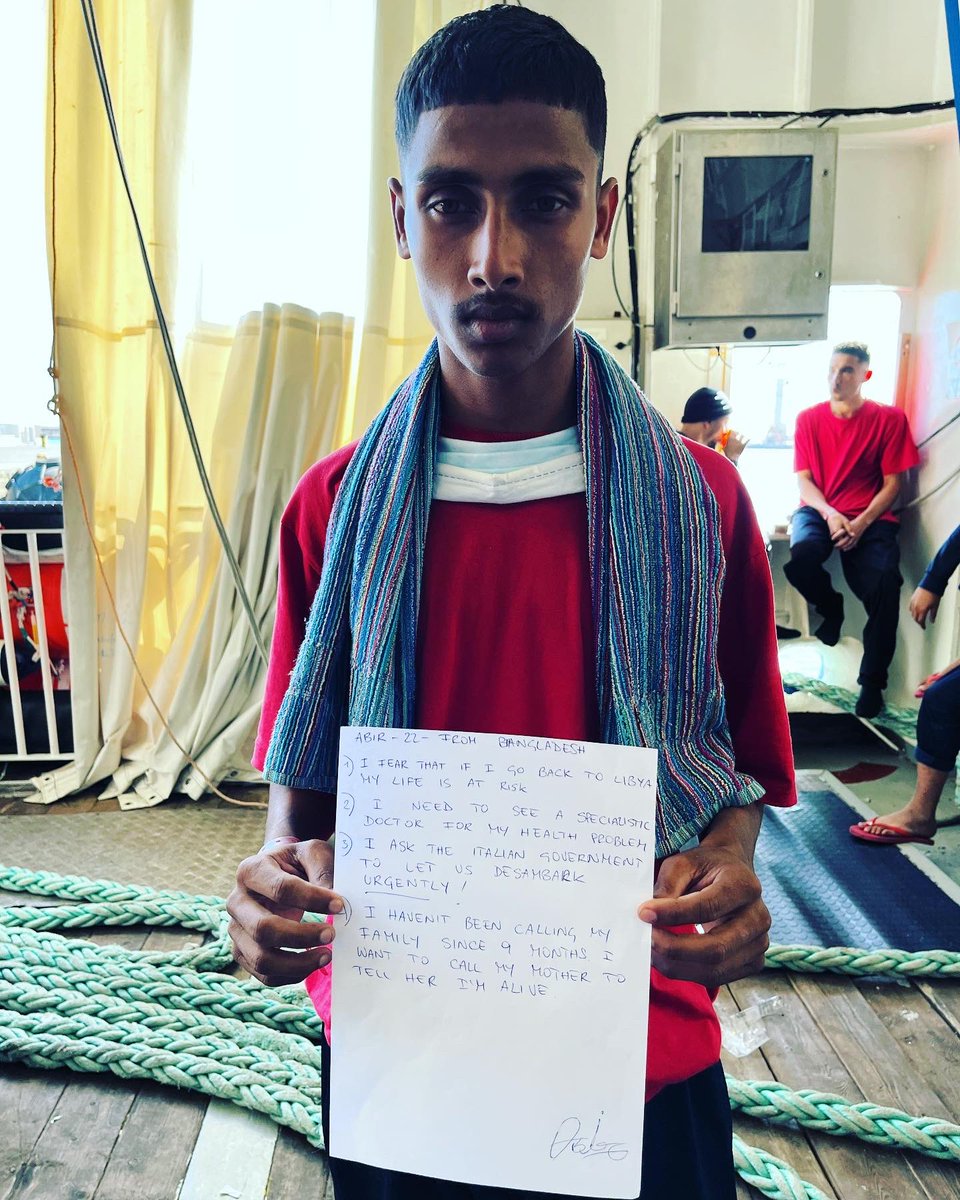 ABIR - 22 - FROM BANGLADESH
1) I FEAR THAT IF I GO BACK TO LIBYA
MY LIFE IS AT RISK
2) I NEED TO SEE A SPECIALISTIC
DOCTOR FOR MY HEALTH PROBLEM
3) I ASK THE ITALIAN GOVERNMENT
TO LET US DESAMBARK
URGENTLY!
4) I HAVEN'T BEEN CALLING MY
FAMILY SINCE 9 MONTHS. I
WANT TO CALL MY MOTHER TO
TELL HER I'M ALIVE.